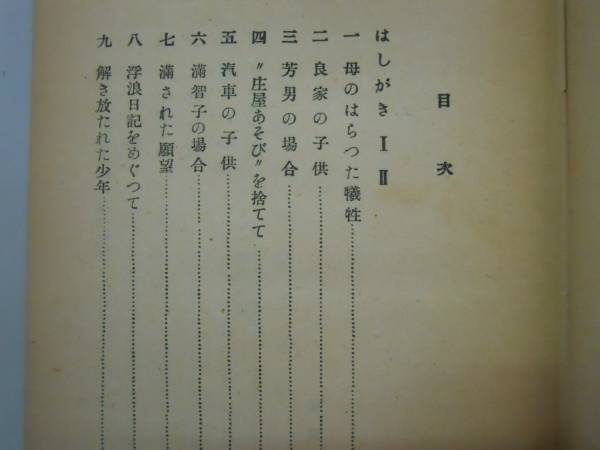 目次
はしがき Ⅰ Ⅱ
一 母のはらつた犠牲
二 良家の子供
三 芳男の場合
四 〝庄屋あそび〟を捨てて
五 汽車の子供
六 満智子の場合
七 満された願望
八 浮浪日記をめぐつて
九 解き放たれた少年